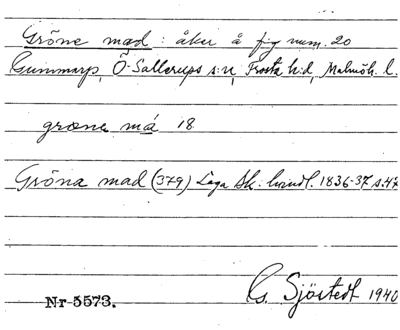 Gröne mad : åker å fig num. 20
Gummarp, Ö. Sallerups s:n, Frosta h:d, Malmöh. l.
græne má 18
Gröna mad (379) Laga sk. handl. 1836-37 s.47
Nr 5573.
G. Sjöstedt 1940